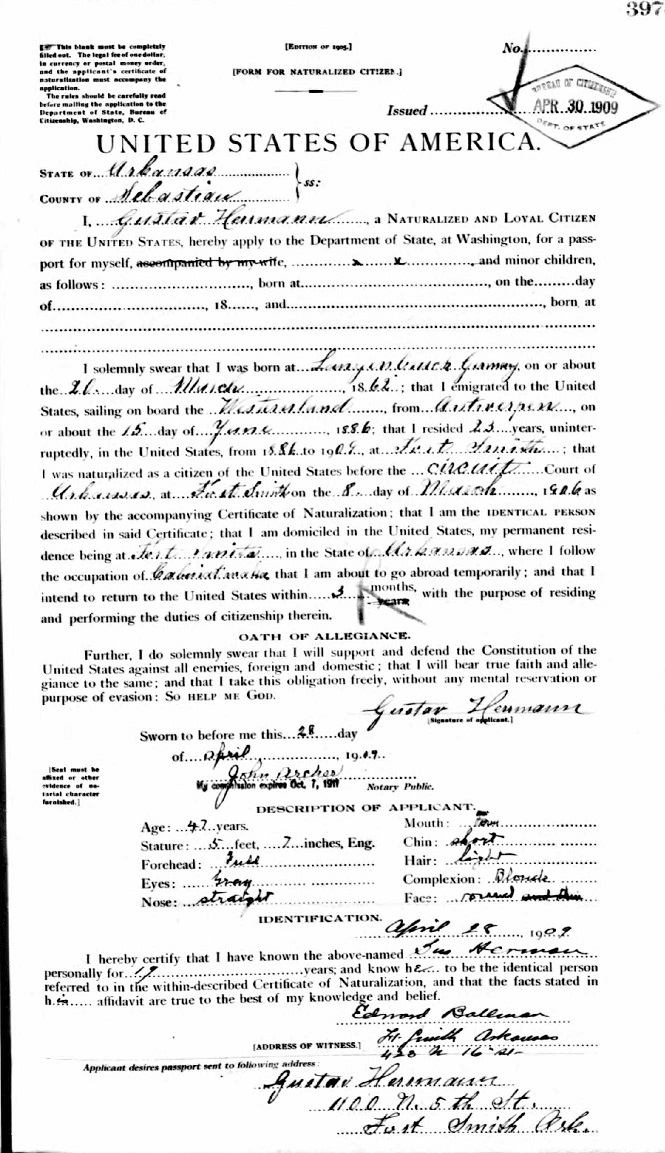 397
☞ This blank must be completely
filled out. The legal fee of one dollar,
in currency or postal money order,
and the applicant's certificate of
naturalization must accompany the
application.
The rules should be carefully read
before mailing the application to the
Department of State, Bureau of
Citizenship, Washington, D. C.
[EDITION OF 1905.]
[FORM FOR NATURALIZED CITIZEN.]
No.
Issued
BUREAU OF CITIZENSHIP
APR 30 1909
DEPT. OF STATE
UNITED STATES OF AMERICA.
STATE OF Arkansas
COUNTY OF Sebastian } ss:
I, Gustav Hermann, a NATURALIZED AND LOYAL CITIZEN
OF THE UNITED STATES, hereby apply to the Department of State, at Washington, for a pass-
port for myself, accompanied by my wife, x x, and minor children,
as follows: , born at , on the day
of , 18 , and , born at
I solemnly swear that I was born at Germany, on or about
the 20 day of March, 1862; that I emigrated to the United
States, sailing on board the Westernland, from Antwerpen, on
or about the 15 day of June, 1886; that I resided 23 years, uninter-
ruptedly, in the United States, from 1886 to 1909, at Fort Smith; that
I was naturalized as a citizen of the United States before the circuit Court of
Arkansas, at Fort Smith on the 8 day of March, 1906 as
shown by the accompanying Certificate of Naturalization; that I am the IDENTICAL PERSON
described in said Certificate; that I am domiciled in the United States, my permanent resi-
dence being at Fort Smith in the State of Arkansas, where I follow
the occupation of Cabinetmaker, that I am about to go abroad temporarily; and that I
intend to return to the United States within 3 months, years, with the purpose of residing
and performing the duties of citizenship therein.
OATH OF ALLEGIANCE.
Further, I do solemnly swear that I will support and defend the Constitution of the
United States against all enemies, foreign and domestic; that I will bear true faith and alle-
giance to the same; and that I take this obligation freely, without any mental reservation or
purpose of evasion: SO HELP ME GOD.
Gustav Hermann
[Signature of applicant.]
Sworn to before me this 28 day
of April, 1909.
[Seal must be
affixed or other
evidence of no-
tarial character
furnished.]
John Archer
My commission expires Oct. 7, 1911
Notary Public.
DESCRIPTION OF APPLICANT.
Age: 47 years.
Stature: 5 feet, 7 inches, Eng.
Forehead: Full
Eyes: Gray
Nose: straight
Mouth:
Chin: short
Hair: light
Complexion: Blonde
Face: round and thin
IDENTIFICATION.
April 28, 1909
I hereby certify that I have known the above-named Gus Herman
personally for 19 years; and know h to be the identical person
referred to in the within-described Certificate of Naturalization, and that the facts stated in
his affidavit are true to the best of my knowledge and belief.
Edward Ballman
[ADDRESS OF WITNESS.] Ft. Smith Arkansas
420 N 16 st
Applicant desires passport sent to following address:
Gustav Hermann
1100 N. 5th St.
Fort Smith Ark.